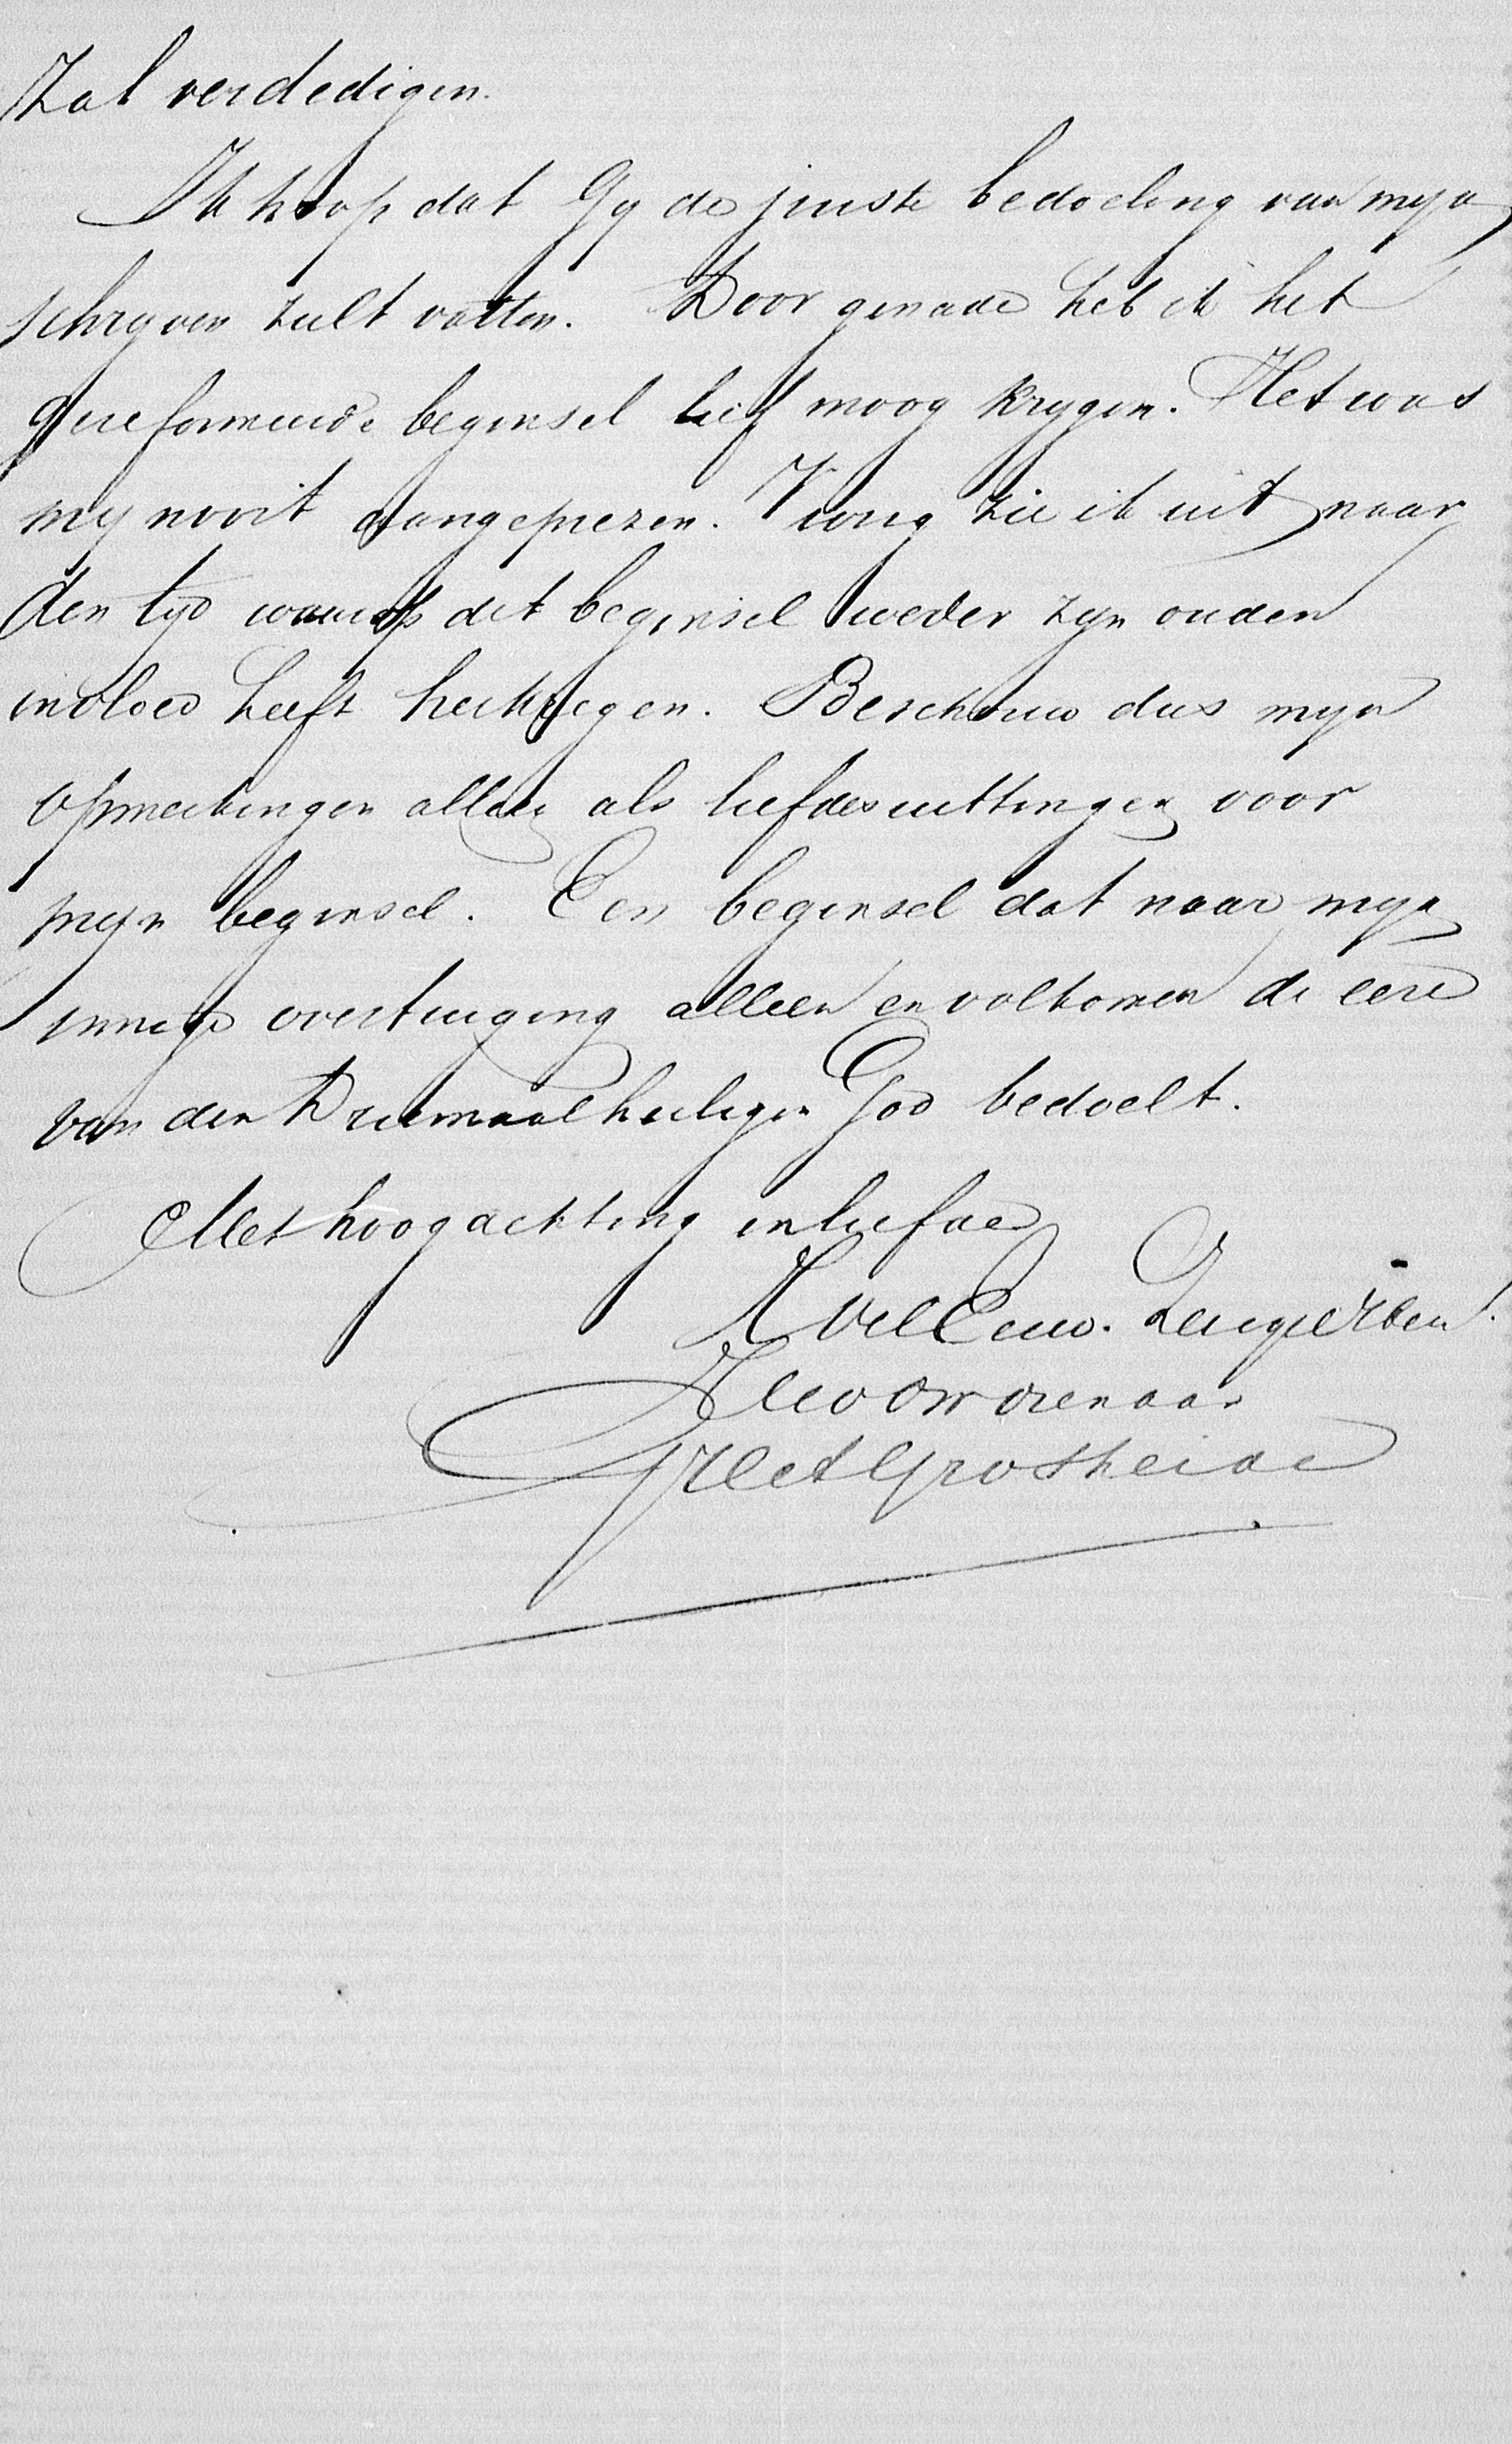 zal verdedigen.
Ik hoop dat Gy de juiste bedoeling van myn
schryven zult vatten. Door genade heb ik het
gereformeerde beginsel lief moog krygen. Het was
my nooit aangeprezen. Vurig zie ik uit naar
den tyd waarop dit beginsel weder zyn ouden
invloed heeft herkregen. Beschouw dus myn
opmerkingen alleen als liefdesuittingen voor
myn beginsel. Een beginsel dat naar myn
innige overtuiging alleen en volkomen de eere
van den Driemaalheiligen God bedoelt.
Met hoogachting en liefde
UwelEerw.
dw dienaar
Grosheide